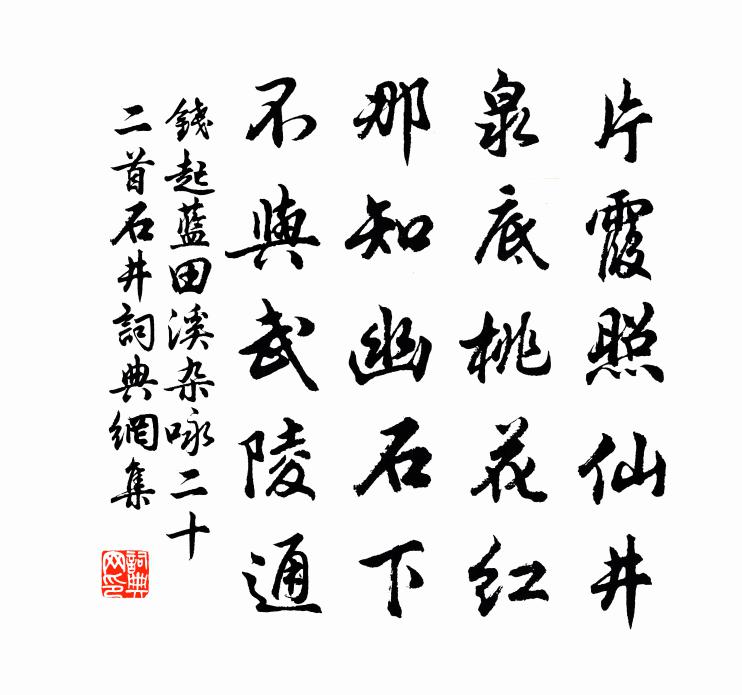 片霞照仙井
泉底桃花红
那知幽石下
不與武陵通
錢起蓝田溪杂咏二十
二首石井詞典網集
詞典网印